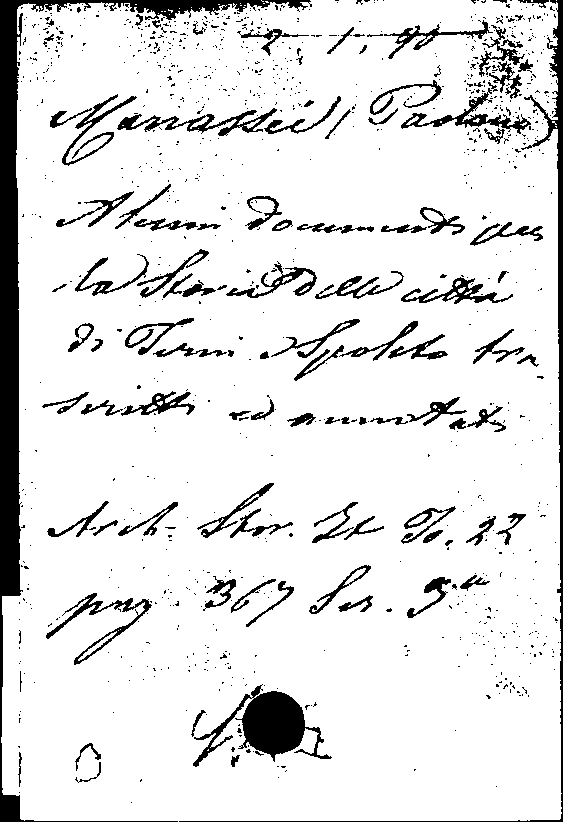 2. 1. 90
Manassei (Paolano)
Alcuni documenti per
la Storia delle città
di Terni e Spoleto tra
scritti ed annotati
Arch. Stor. It To. 22
pag. 367 Ser. 3ª